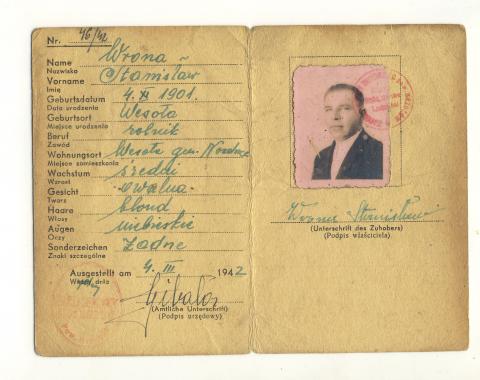 Nr. 46/42
Name Wrona
Nazwisko
Vorname Stanisław
Imię
Geburtsdatum 4. XI 1901.
Data urodzenia
Geburtsort Wesoła
Miejsce urodzenia
Beruf rolnik
Zawód
Wohnungsort Wesoła gm. Nozdrzec
Miejsce zamieszkania
Wachstum średni
Wzrost
Gesicht owalna
Twarz
Haare blond
Włosy
Augen niebieskie
Oczy
Sonderzeichen Żadne
Znaki szczególne
Ausgestellt am 4. III 1942
dnia
(Amtliche Unterschrift)
(Podpis urzędowy)
Wrona Stanisław
(Unterschrift des Zuhobers)
(Podpis właściciela)